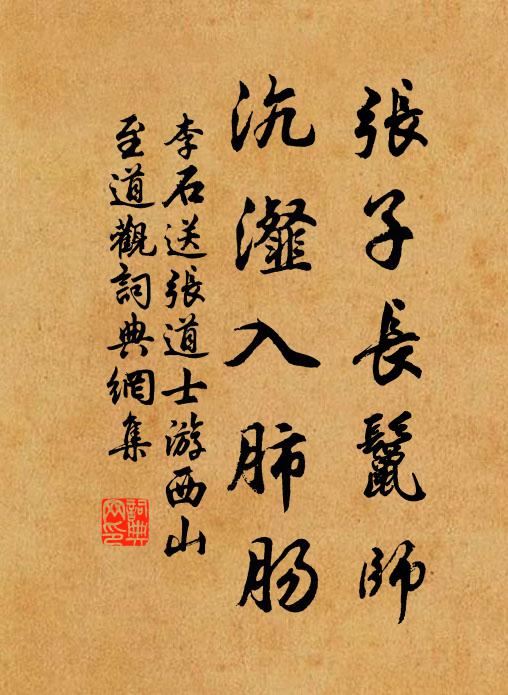 張子長鬣師
沆瀣入肺腸
李石送張道士游西山
至道觀詞典網集
詞典網印